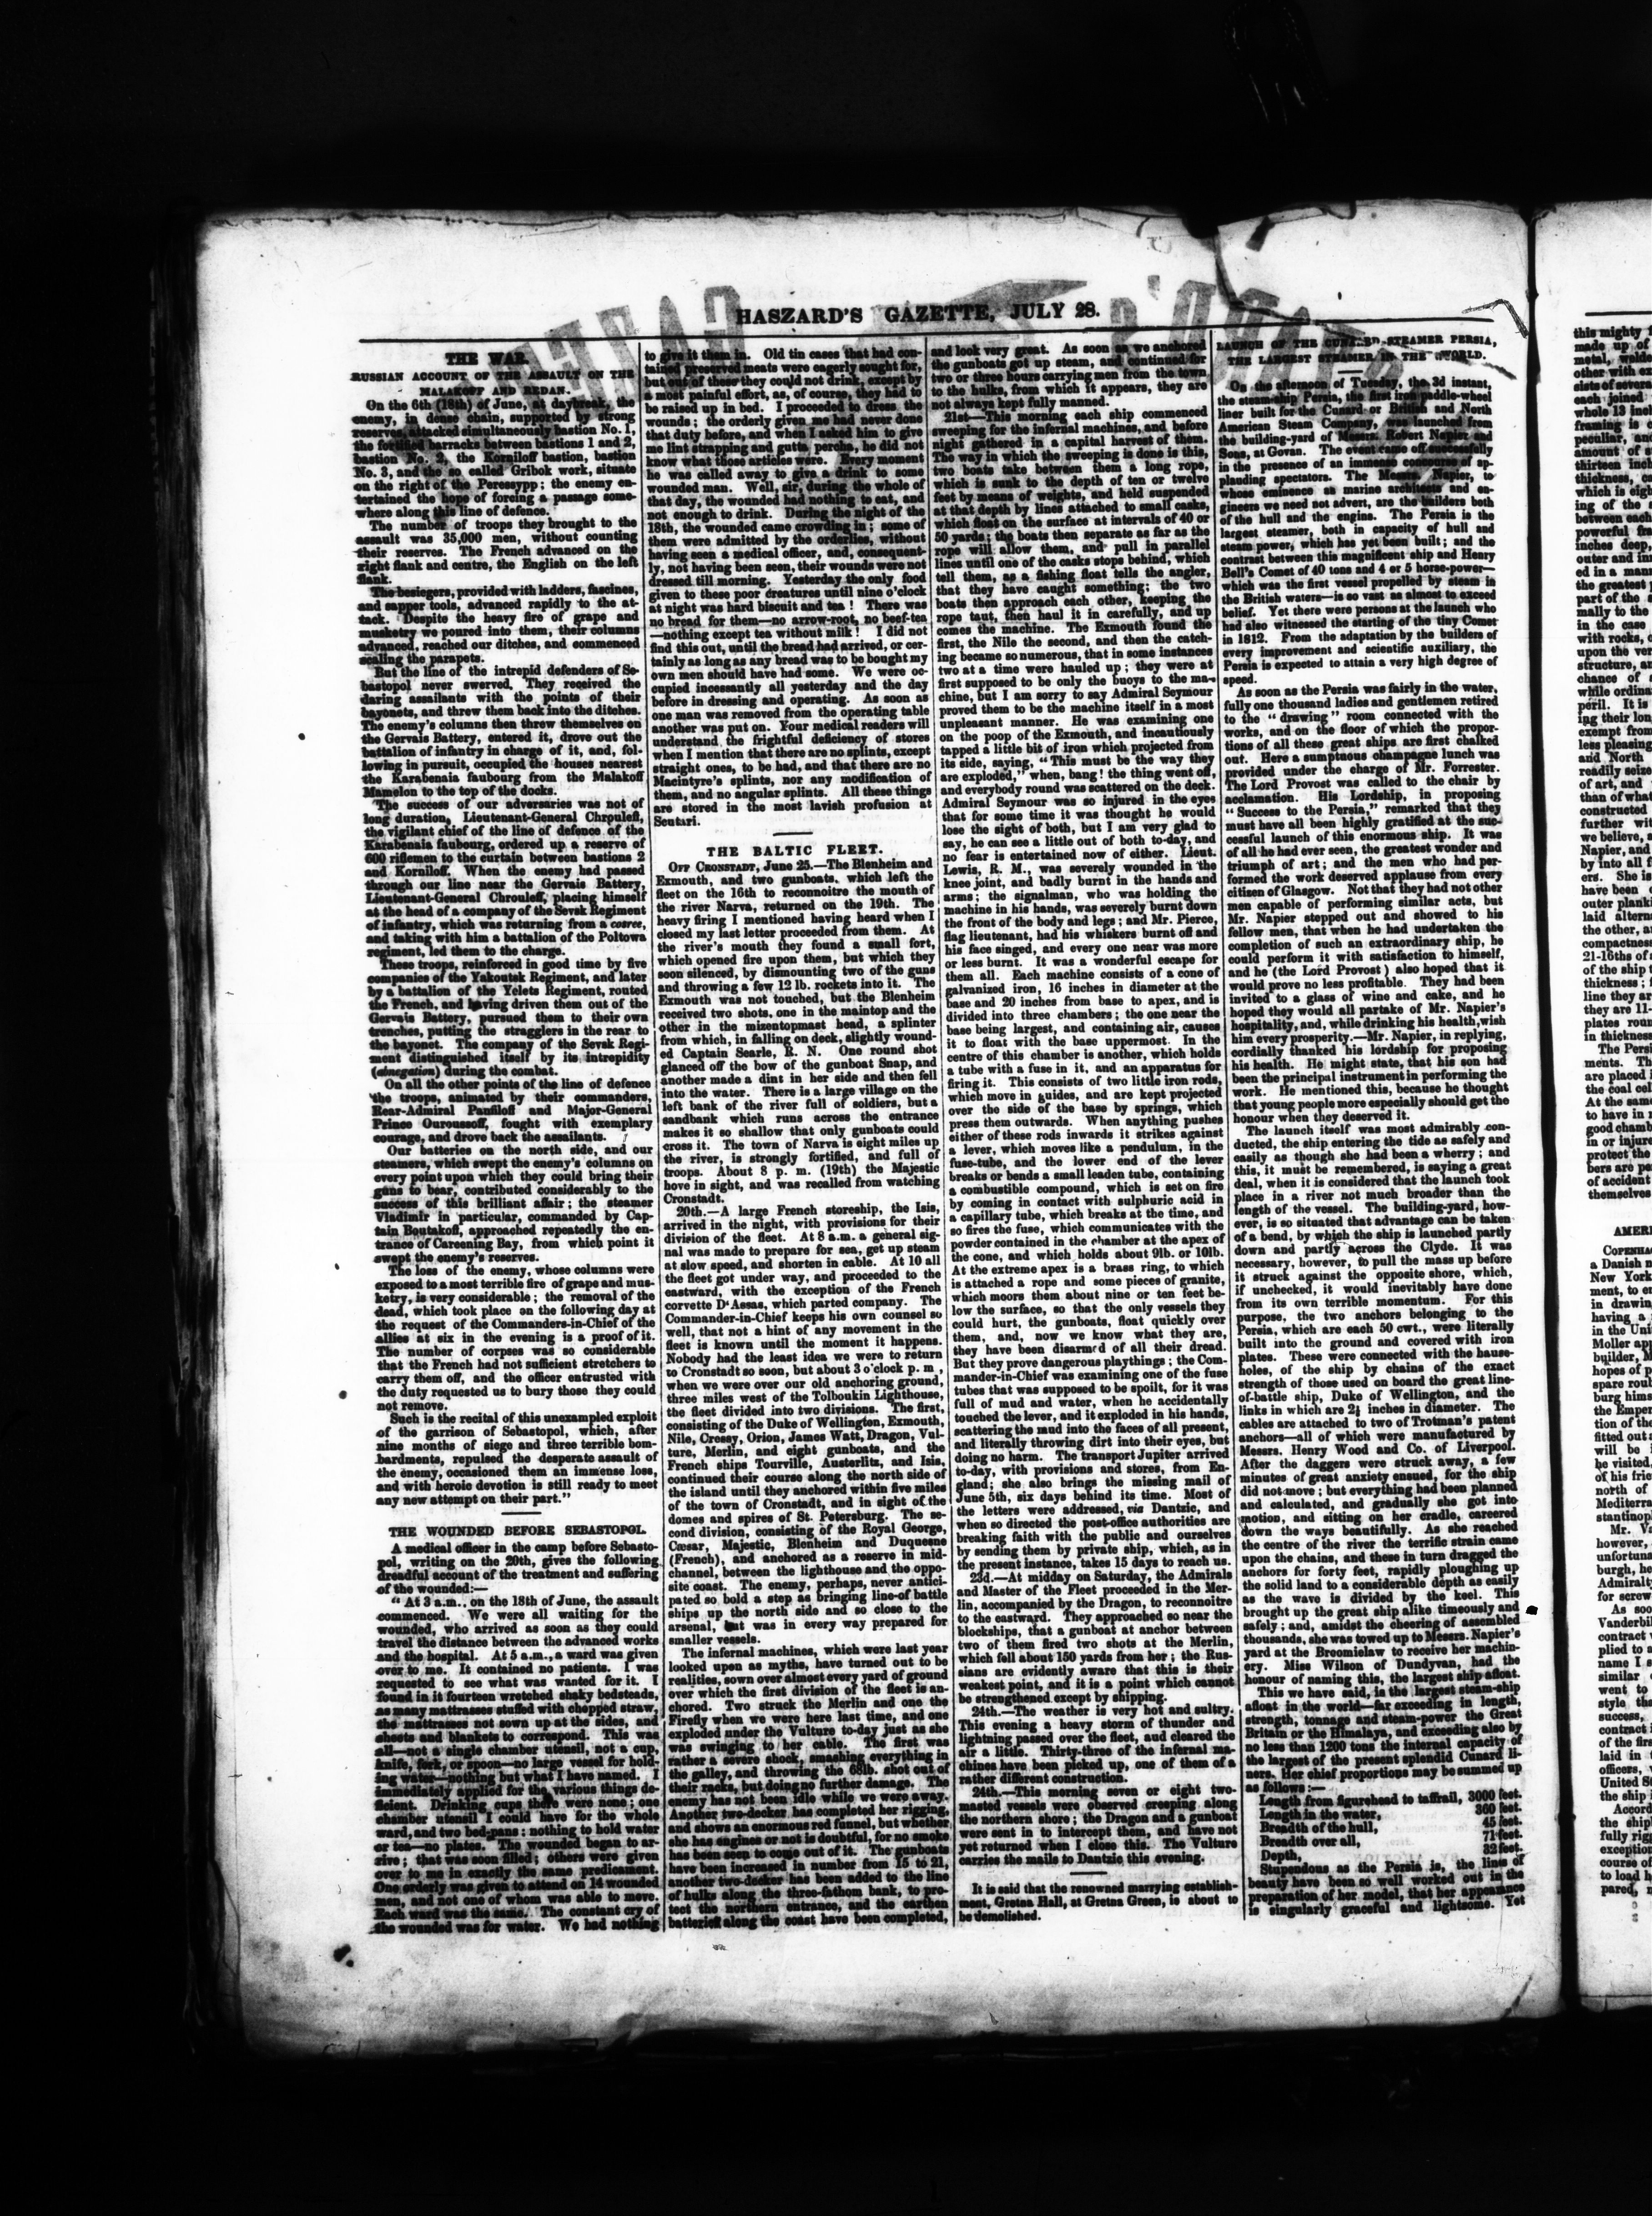 HASZARD'S GAZETTE, JULY 28.
THE WAR.
RUSSIAN ACCOUNT OF THE ASSAULT ON THE
MALAKOFF AND REDAN.
On the 6th (18th) of June, at daybreak, the
enemy, in dense chain, supported by strong
reserves, attacked simultaneously bastion No. 1,
the fortified barracks between bastions 1 and 2,
bastion No. 2, the Korniloff bastion, bastion
No. 3, and the so called Gribok work, situate
on the right of the Peressypp; the enemy en-
tertained the hope of forcing a passage some-
where along this line of defence.
The number of troops they brought to the
assault was 35,000 men, without counting
their reserves. The French advanced on the
right flank and centre, the English on the left
flank.
The besiegers, provided with ladders, fascines,
and sapper tools, advanced rapidly to the at-
tack. Despite the heavy fire of grape and
musketry we poured into them, their columns
advanced, reached our ditches, and commenced
scaling the parapets.
But the line of the intrepid defenders of Se-
bastopol never swerved. They received the
daring assailants with the points of their
bayonets, and threw them back into the ditches.
The enemy's columns then threw themselves on
the Gervais Battery, entered it, drove out the
battalion of infantry in charge of it, and, fol-
lowing in pursuit, occupied the houses nearest
the Karabenaia faubourg from the Malakoff
Mamelon to the top of the docks.
The success of our adversaries was not of
long duration, Lieutenant-General Chrouleff,
the vigilant chief of the line of defence of the
Karabenaia faubourg, ordered up a reserve of
600 riflemen to the curtain between bastions 2
and Korniloff. When the enemy had passed
through our line near the Gervais Battery,
Lieutenant-General Chrouleff, placing himself
at the head of a company of the Sevsk Regiment
of infantry, which was returning from a corvee,
and taking with him a battalion of the Poltowa
regiment, led them to the charge.
These troops, reinforced in good time by five
companies of the Yakoutsk Regiment, and later
by a battalion of the Yelets Regiment, routed
the French, and having driven them out of the
Gervais Battery, pursued them to their own
trenches, putting the stragglers in the rear to
the bayonet. The company of the Sevsk Regi-
ment distinguished itself by its intrepidity
(abnegation) during the combat.
On all the other points of the line of defence
the troops, animated by their commanders,
Rear-Admiral Panfiloff and Major-General
Prince Ouroussoff, fought with exemplary
courage, and drove back the assailants.
Our batteries on the north side, and our
steamers, which swept the enemy's columns on
every point upon which they could bring their
guns to bear, contributed considerably to the
success of this brilliant affair; the steamer
Vladimir in particular, commanded by Cap-
tain Boutakoff, approached repeatedly the en-
trance of Careening Bay, from which point it
swept the enemy's reserves.
The loss of the enemy, whose columns were
exposed to a most terrible fire of grape and mus-
ketry, is very considerable; the removal of the
dead, which took place on the following day at
the request of the Commanders-in-Chief of the
allies at six in the evening is a proof of it.
The number of corpses was so considerable
that the French had not sufficient stretchers to
carry them off, and the officer entrusted with
the duty requested us to bury those they could
not remove.
Such is the recital of this unexampled exploit
of the garrison of Sebastopol, which, after
nine months of siege and three terrible bom-
bardments, repulsed the desperate assault of
the enemy, occasioned them an immense loss,
and with heroic devotion is still ready to meet
any new attempt on their part."
THE WOUNDED BEFORE SEBASTOPOL
A medical officer in the camp before Sebasto-
pol, writing on the 20th, gives the following
dreadful account of the treatment and suffering
of the wounded:—
"At 3 a.m., on the 18th of June, the assault
commenced. We were all waiting for the
wounded, who arrived as soon as they could
travel the distance between the advanced works
and the hospital. At 5 a.m., a ward was given
over to me. It contained no patients. I was
requested to see what was wanted for it. I
found in it fourteen wretched shaky bedsteads,
as many mattrasses stuffed with chopped straw,
the mattrasses not sown up at the sides, and
sheets and blankets to correspond. This was
all—not a single chamber utensil, not a cup,
knife, fork, or spoon—no large vessel for hold-
ing water—nothing but what I have named. I
immediately applied for the various things de-
ficient. Drinking cups there were none; one
chamber utensil I could have for the whole
ward, and two bed-pans; nothing to hold water
or tea—no plates. The wounded began to ar-
rive; that was soon filled; others were given
over to me in exactly the same predicament.
One orderly was given to attend on 14 wounded
men, and not one of whom was able to move.
Each ward was the same. The constant cry of
the wounded was for water. We had nothing
to give it them in. Old tin cases that had con-
tained preserved meats were eagerly sought for,
but out of these they could not drink, except by
a most painful effort, as, of course, they had to
be raised up in bed. I proceeded to dress the
wounds; the orderly given me had never done
that duty before, and when I asked him to give
me lint strapping and gutta percha, he did not
know what those articles were. Every moment
he was called away to give a drink to some
wounded man. Well, sir, during the whole of
that day, the wounded had nothing to eat, and
not enough to drink. During the night of the
18th, the wounded came crowding in; some of
them were admitted by the orderlies, without
having seen a medical officer, and, consequent-
ly, not having been seen, their wounds were not
dressed till morning. Yesterday the only food
given to these poor creatures until nine o'clock
at night was hard biscuit and tea! There was
no bread for them—no arrow-root, no beef-tea
—nothing except tea without milk! I did not
find this out, until the bread had arrived, or cer-
tainly as long as any bread was to be bought my
own men should have had some. We were oc-
cupied incessantly all yesterday and the day
before in dressing and operating. As soon as
one man was removed from the operating table
another was put on. Your medical readers will
understand the frightful deficiency of stores
when I mention that there are no splints, except
straight ones, to be had, and that there are no
Macintyre's splints, nor any modification of
them, and no angular splints. All these things
are stored in the most lavish profusion at
Scutari.
THE BALTIC FLEET.
OFF CRONSTADT, June 25.—The Blenheim and
Exmouth, and two gunboats, which left the
fleet on the 16th to reconnoitre the mouth of
the river Narva, returned on the 19th. The
heavy firing I mentioned having heard when I
closed my last letter proceeded from them. At
the river's mouth they found a small fort,
which opened fire upon them, but which they
soon silenced, by dismounting two of the guns
and throwing a few 12 lb. rockets into it. The
Exmouth was not touched, but the Blenheim
received two shots, one in the maintop and the
other in the mizentopmast head, a splinter
from which, in falling on deck, slightly wound-
ed Captain Searle, R. N. One round shot
glanced off the bow of the gunboat Snap, and
another made a dint in her side and then fell
into the water. There is a large village on the
left bank of the river full of soldiers, but a
sandbank which runs across the entrance
makes it so shallow that only gunboats could
cross it. The town of Narva is eight miles up
the river, is strongly fortified, and full of
troops. About 8 p. m. (19th) the Majestic
hove in sight, and was recalled from watching
Cronstadt.
20th.—A large French storeship, the Isis,
arrived in the night, with provisions for their
division of the fleet. At 8 a.m. a general sig-
nal was made to prepare for sea, get up steam
at slow speed, and shorten in cable. At 10 all
the fleet got under way, and proceeded to the
eastward, with the exception of the French
corvette D'Assas, which parted company. The
Commander-in-Chief keeps his own counsel so
well, that not a hint of any movement in the
fleet is known until the moment it happens.
Nobody had the least idea we were to return
to Cronstadt so soon, but about 3 o'clock p. m,
when we were over our old anchoring ground,
three miles west of the Tolboukin Lighthouse,
the fleet divided into two divisions. The first,
consisting of the Duke of Wellington, Exmouth,
Nile, Cressy, Orion, James Watt, Dragon, Vul-
ture, Merlin, and eight gunboats, and the
French ships Tourville, Austerlitz, and Isis,
continued their course along the north side of
the island until they anchored within five miles
of the town of Cronstadt, and in sight of the
domes and spires of St. Petersburg. The se-
cond division, consisting of the Royal George,
Cæsar, Majestic, Blenheim and Duquesne
(French), and anchored as a reserve in mid-
channel, between the lighthouse and the oppo-
site coast. The enemy, perhaps, never antici-
pated so bold a step as bringing line-of battle
ships up the north side and so close to the
arsenal, but was in every way prepared for
smaller vessels.
The infernal machines, which were last year
looked upon as myths, have turned out to be
realities, sown over almost every yard of ground
over which the first division of the fleet is an-
chored. Two struck the Merlin and one the
Firefly when we were here last time, and one
exploded under the Vulture to-day just as she
was swinging to her cable. The first was
rather a severe shock, smashing everything in
the galley, and throwing the 68lb. shot out of
their racks, but doing no further damage. The
enemy has not been idle while we were away.
Another two-decker has completed her rigging,
and shows an enormous red funnel, but whether
she has engines or not is doubtful, for no smoke
has been seen to come out of it. The gunboats
have been increased in number from 15 to 21,
another two-decker has been added to the line
of hulks along the three-fathom bank, to pro-
tect the northern entrance, and the earthen
batteries along the coast have been completed,
and look very great. As soon as we anchored
the gunboats got up steam, and continued for
two or three hours carrying men from the town
to the hulks, from which it appears, they are
not always kept fully manned.
21st—This morning each ship commenced
sweeping for the infernal machines, and before
night gathered in a capital harvest of them.
The way in which the sweeping is done is this,
two boats take between them a long rope,
which is sunk to the depth of ten or twelve
feet by means of weights, and held suspended
at that depth by lines attached to small casks,
which float on the surface at intervals of 40 or
50 yards; the boats then separate as far as the
rope will allow them, and pull in parallel
lines until one of the casks stops behind, which
tell them, as a fishing float tells the angler,
that they have caught something; the two
boats then approach each other, keeping the
rope taut, then haul it in carefully, and up
comes the machine. The Exmouth found the
first, the Nile the second, and then the catch-
ing became so numerous, that in some instances
two at a time were hauled up; they were at
first supposed to be only the buoys to the ma-
chine, but I am sorry to say Admiral Seymour
proved them to be the machine itself in a most
unpleasant manner. He was examining one
on the poop of the Exmouth, and incautiously
tapped a little bit of iron which projected from
its side, saying, "This must be the way they
are exploded," when, bang! the thing went off,
and everybody round was scattered on the deck.
Admiral Seymour was so injured in the eyes
that for some time it was thought he would
lose the sight of both, but I am very glad to
say, he can see a little out of both to-day, and
no fear is entertained now of either. Lieut.
Lewis, R. M., was severely wounded in the
knee joint, and badly burnt in the hands and
arms; the signalman, who was holding the
machine in his hands, was severely burnt down
the front of the body and legs; and Mr. Pierce,
flag lieutenant, had his whiskers burnt off and
his face singed, and every one near was more
or less burnt. It was a wonderful escape for
them all. Each machine consists of a cone of
galvanized iron, 16 inches in diameter at the
base and 20 inches from base to apex, and is
divided into three chambers; the one near the
base being largest, and containing air, causes
it to float with the base uppermost. In the
centre of this chamber is another, which holds
a tube with a fuse in it, and an apparatus for
firing it. This consists of two little iron rods,
which move in guides, and are kept projected
over the side of the base by springs, which
press them outwards. When anything pushes
either of these rods inwards it strikes against
a lever, which moves like a pendulum, in the
fuse-tube, and the lower end of the lever
breaks or bends a small leaden tube, containing
a combustible compound, which is set on fire
by coming in contact with sulphuric acid in
a capillary tube, which breaks at the time, and
so fires the fuse, which communicates with the
powder contained in the chamber at the apex of
the cone, and which holds about 9lb. or 10lb.
At the extreme apex is a brass ring, to which
is attached a rope and some pieces of granite,
which moors them about nine or ten feet be-
low the surface, so that the only vessels they
could hurt, the gunboats, float quickly over
them, and, now we know what they are,
they have been disarmed of all their dread.
But they prove dangerous playthings; the Com-
mander-in-Chief was examining one of the fuse
tubes that was supposed to be spoilt, for it was
full of mud and water, when he accidentally
touched the lever, and it exploded in his hands,
scattering the mud into the faces of all present,
and literally throwing dirt into their eyes, but
doing no harm. The transport Jupiter arrived
to-day, with provisions and stores, from En-
gland; she also brings the missing mail of
June 5th, six days behind its time. Most of
the letters were addressed, via Dantzic, and
when so directed the post-office authorities are
breaking faith with the public and ourselves
by sending them by private ship, which, as in
the present instance, takes 15 days to reach us.
23d.—At midday on Saturday, the Admirals
and Master of the Fleet proceeded in the Mer-
lin, accompanied by the Dragon, to reconnoitre
to the eastward. They approached so near the
blockships, that a gunboat at anchor between
two of them fired two shots at the Merlin,
which fell about 150 yards from her; the Rus-
sians are evidently aware that this is their
weakest point, and it is a point which cannot
be strengthened except by shipping.
24th.—The weather is very hot and sultry.
This evening a heavy storm of thunder and
lightning passed over the fleet, and cleared the
air a little. Thirty-three of the infernal ma-
chines have been picked up, one of them of a
rather different construction.
24th.—This morning seven or eight two-
masted vessels were observed creeping along
the northern shore; the Dragon and a gunboat
were sent in to intercept them, and have not
yet returned when I close this. The Vulture
carries the mails to Dantzic this evening.
It is said that the renowned marrying establish-
ment, Gretna Hall, at Gretna Green, is about to
be demolished.
LAUNCH OF THE CUNARD STEAMER PERSIA,
THE LARGEST STEAMER IN THE WORLD.
On the afternoon of Tuesday, the 3d instant,
the steam-ship Persia, the first iron paddle-wheel
liner built for the Cunard or British and North
American Steam Company, was launched from
the building-yard of Messrs. Robert Napier and
Sons, at Govan. The event came off successfully
in the presence of an immense concourse of ap-
plauding spectators. The Messrs. Napier, to
whose eminence as marine architects and en-
gineers we need not advert, are the builders both
of the hull and the engine. The Persia is the
largest steamer, both in capacity of hull and
steam power, which has yet been built; and the
contrast between this magnificent ship and Henry
Bell's Comet of 40 tons and 4 or 5 horse-power—
which was the first vessel propelled by steam in
the British waters—is so vast as almost to exceed
belief. Yet there were persons at the launch who
had also witnessed the starting of the tiny Comet
in 1812. From the adaptation by the builders of
every improvement and scientific auxiliary, the
Persia is expected to attain a very high degree of
speed.
As soon as the Persia was fairly in the water,
fully one thousand ladies and gentlemen retired
to the "drawing" room connected with the
works, and on the floor of which the propor-
tions of all these great ships are first chalked
out. Here a sumptuous champagne lunch was
provided under the charge of Mr. Forrester.
The Lord Provost was called to the chair by
acclamation. His Lordship, in proposing
"Success to the Persia," remarked that they
must have all been highly gratified at the suc-
cessful launch of this enormous ship. It was
of all he had ever seen, the greatest wonder and
triumph of art; and the men who had per-
formed the work deserved applause from every
citizen of Glasgow. Not that they had not other
men capable of performing similar acts, but
Mr. Napier stepped out and showed to his
fellow men, that when he had undertaken the
completion of such an extraordinary ship, he
could perform it with satisfaction to himself,
and he (the Lord Provost) also hoped that it
would prove no less profitable. They had been
invited to a glass of wine and cake, and he
hoped they would all partake of Mr. Napier's
hospitality, and, while drinking his health, wish
him every prosperity.—Mr. Napier, in replying,
cordially thanked his lordship for proposing
his health. He might state, that his son had
been the principal instrument in performing the
work. He mentioned this, because he thought
that young people more especially should get the
honour when they deserved it.
The launch itself was most admirably con-
ducted, the ship entering the tide as safely and
easily as though she had been a wherry; and
this, it must be remembered, is saying a great
deal, when it is considered that the launch took
place in a river not much broader than the
length of the vessel. The building-yard, how-
ever, is so situated that advantage can be taken
of a bend, by which the ship is launched partly
down and partly across the Clyde. It was
necessary, however, to pull the mass up before
it struck against the opposite shore, which,
if unchecked, it would inevitably have done
from its own terrible momentum. For this
purpose, the two anchors belonging to the
Persia, which are each 50 cwt., were literally
built into the ground and covered with iron
plates. These were connected with the hause-
holes, of the ship by chains of the exact
strength of those used on board the great line-
of-battle ship, Duke of Wellington, and the
links in which are 2¼ inches in diameter. The
cables are attached to two of Trotman's patent
anchors—all of which were manufactured by
Messrs. Henry Wood and Co. of Liverpool.
After the daggers were struck away, a few
minutes of great anxiety ensued, for the ship
did not move; but everything had been planned
and calculated, and gradually she got into
motion, and sitting on her cradle, careered
down the ways beautifully. As she reached
the centre of the river the terrific strain came
upon the chains, and these in turn dragged the
anchors for forty feet, rapidly ploughing up
the solid land to a considerable depth as easily
as the wave is divided by the keel. This
brought up the great ship alike timeously and
safely; and, amidst the cheering of assembled
thousands, she was towed up to Messrs. Napier's
yard at the Broomielaw to receive her machin-
ery. Miss Wilson of Dundyvan, had the
honour of naming this, the largest ship afloat.
This we have said, is the largest steam-ship
afloat in the world—far exceeding in length,
strength, tonnage and steam-power the Great
Britain or the Himalaya, and exceeding also by
no less than 1200 tons the internal capacity of
the largest of the present splendid Cunard li-
ners. Her chief proportions may be summed up
as follows:—
Length from figurehead to taffrail, 3000 feet.
Length in the water, 360 feet.
Breadth of the hull, 45 feet.
Breadth over all, 71 feet.
Depth, 32 feet.
Stupendous as the Persia is, the lines of
beauty have been so well worked out in the
preparation of her model, that her appearance
is singularly graceful and lightsome. Yet